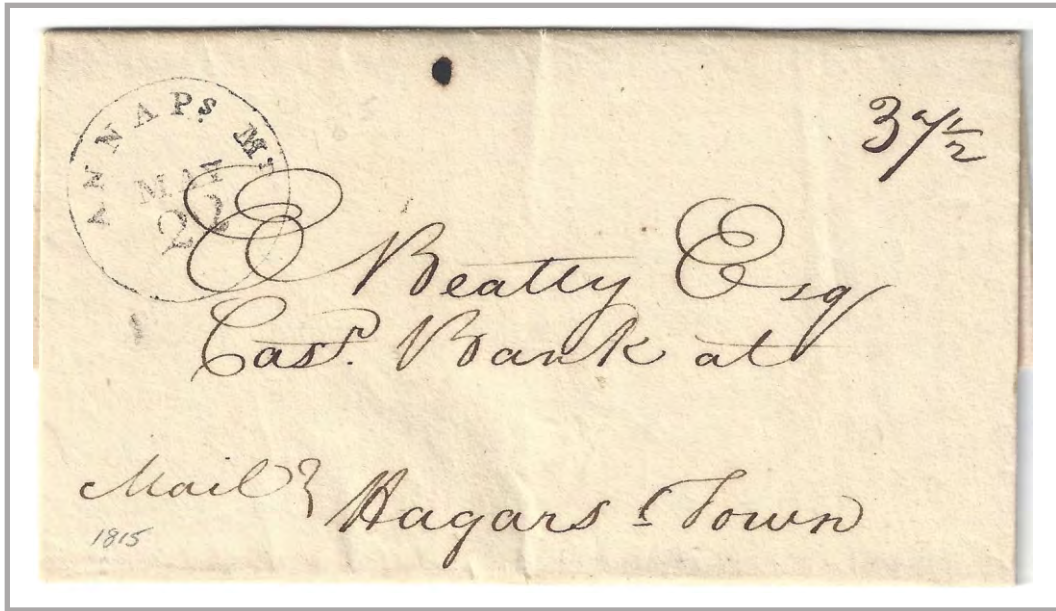 ANNAPs. Md.
MAY
22
37½
E Beatty Esq
Casr. Bank at
Mail} Hagars Town
1815